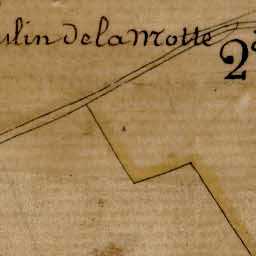 ulin de la Motte
2e